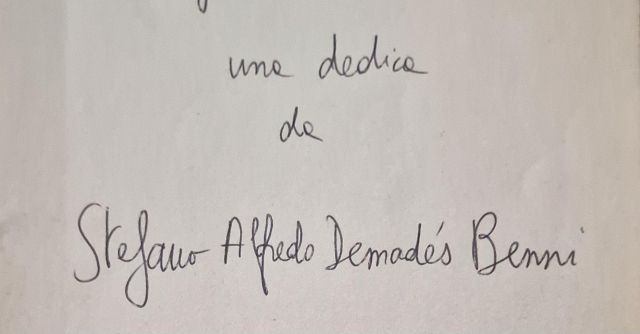 una dedica
da
Stefano Alfredo Demadés Benni